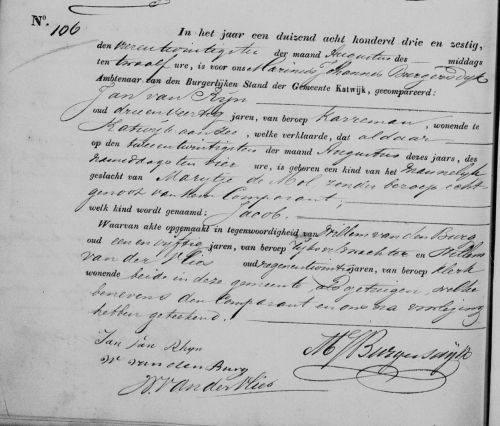 No. 106
In het jaar een duizend acht honderd drie en zestig,
den vierentwintigsten der maand Augustus des middags
ten twaalf ure, is voor ons Marinus Johannes Burgersdijk
Ambtenaar van den Burgerlijken Stand der Gemeente Katwijk, gecompareerd:
Jan van Rijn
oud drieenveertig jaren, van beroep karreman, wonende te
Katwijk aan Zee, welke verklaarde, dat aldaar
op den tweeentwintigsten der maand Augustus dezes jaars, des
namiddags ten vier ure, is geboren een kind van het Vrouwelijk
geslacht van Marijtje de Mol zonder beroep echt
genoot van den Comparant,
welk kind wordt genaamd: Jacob.
Waarvan akte opgemaakt in tegenwoordigheid van Willem van den Burg
oud een en vijftig jaren, van beroep en Willem
van der Vlies oud jaren, van beroep klerk
wonende beide in deze gemeente als getuigen welke
benevens den Comparant en ons na voorlezing
hebben geteekend.
Jan van Rhyn
W van den Burg
W. van der Vlies
MJ Burgersdijk